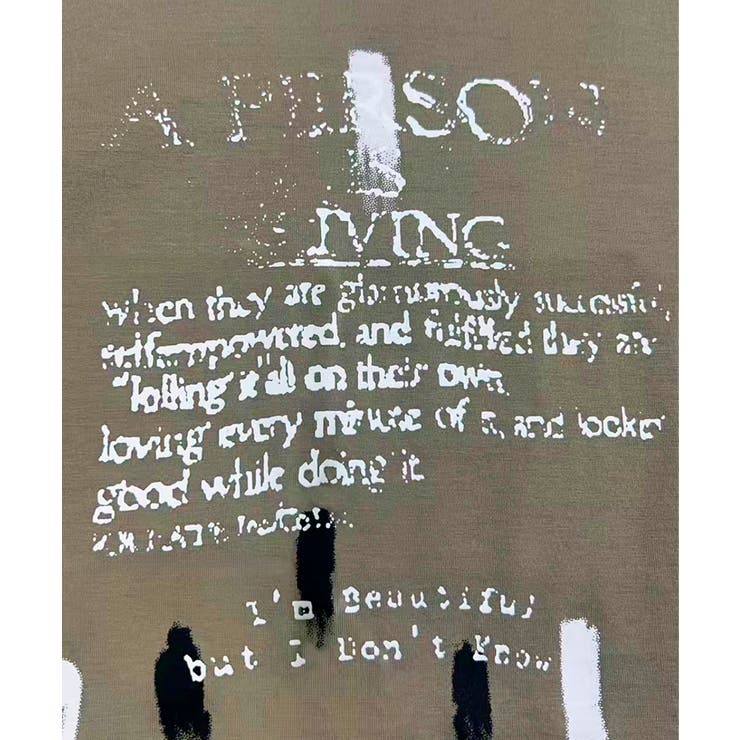 A PERSON
IS
LIVING
when they are glamorously successful,
self-empowered, and fulfilled they are
"killing it all on their own,
loving every minute of it, and lookin'
good while doing it
I'm Beautiful
but I Don't Know